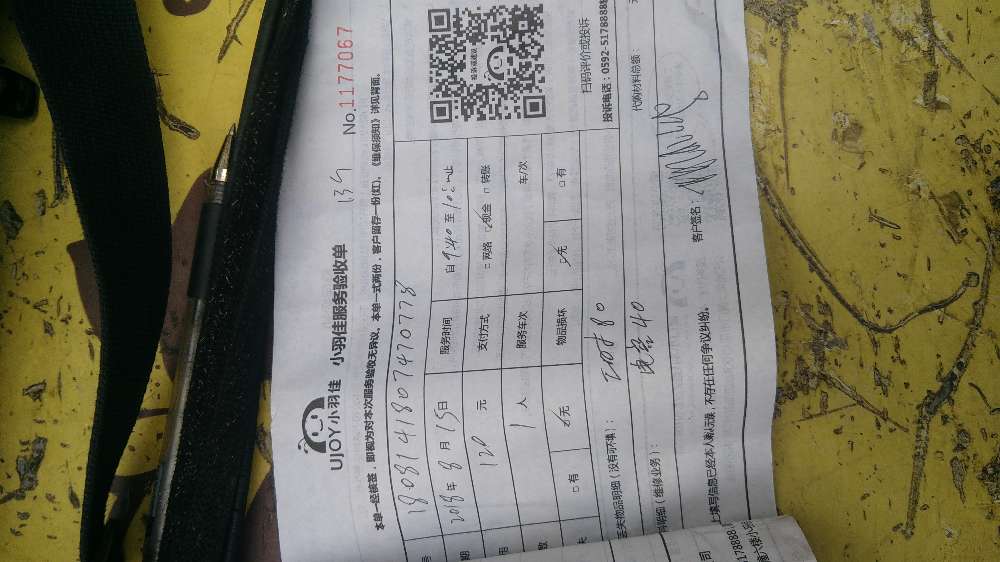 UJOY小羽佳 小羽佳服务验收单
No.1177067
本单一经核签，即视为对本次服务验收无异议。本单一式两份，客户留存一份(红)、《维保须知》详见背面。
1808141807470778
2018年 8月15日 服务时间 自9:40至10:
120 元 支付方式 □网络 ☑现金 □转账
1 人 服务车次 车/次
□有 ☑无 物品损坏 ☑无 □有
丢失物品明细（没有不填）： 工时费80
明细（维修业务）： 40
扫码评价或投诉
投诉电话：0592-5178888
代购材料总额： 元
客户签名：
上填写信息已经本人确认无误，不存在任何争议纠纷。
司
5178888
楼六楼小羽